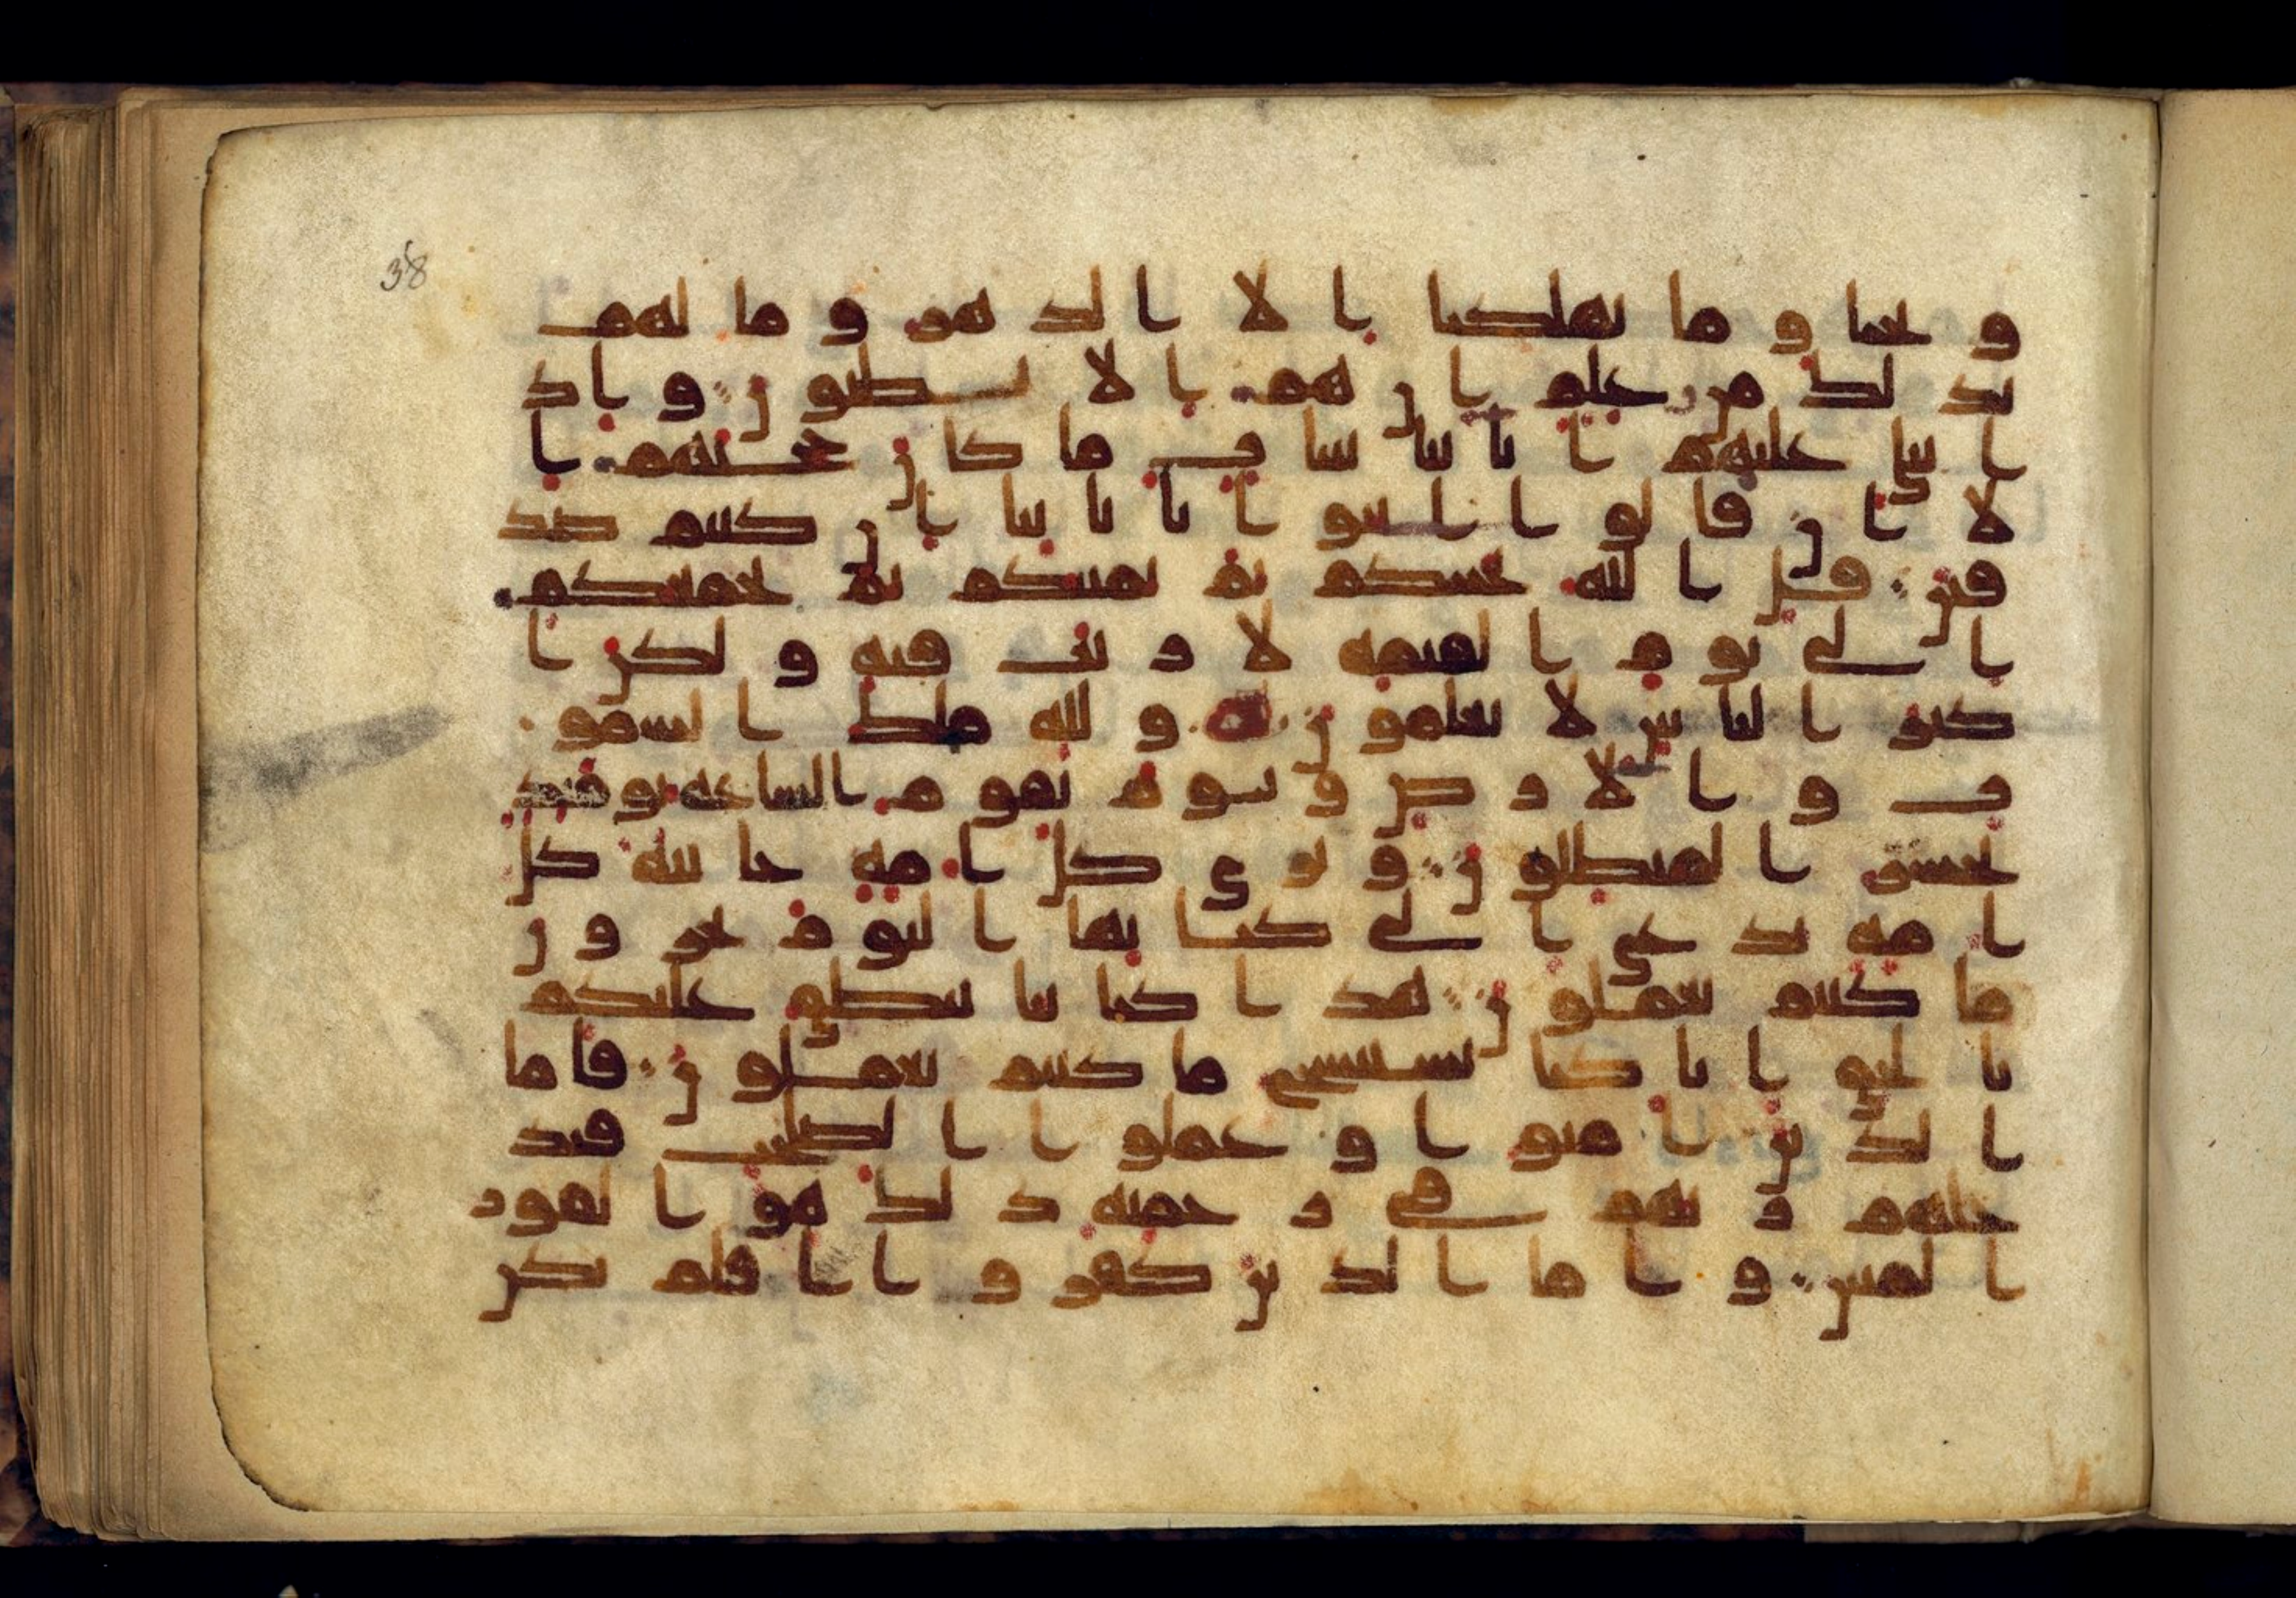 38
و نحيا و ما يهلكنا ا لا ا لد هر و ما لهم
بذ لك من علم ا ن هم ا لا يظنو ن و ا ذ
ا تتلى عليهم ا يا تنا بينا ت ما كا ن حجتهم ا
لا ا ن قا لو ا ا ئتو ا با با ئنا ا ن كنتم صد
قين قل ا لله يحييكم ثم يميتكم ثم يجمعكم
ا لى يو م ا لقيمه لا ر يب فيه و لكن ا
كثر ا لنا س لا يعلمو ن و لله ملك ا لسمو
ت و ا لا ر ض و يو م تقو م ا لسا عه يو مئذ
يخسر ا لمبطلو ن و تر ى كل ا مه جا ثيه كل
ا مه تد عى ا لى كتبها ا ليو م تجز و ن
ما كنتم تعملو ن هذ ا كتا بنا ينطق عليكم
با لحق ا نا كنا نستنسخ ما كنتم تعملو ن فا ما
ا لذ ين ا منو ا و عملو ا ا لصلحت فيد
خلهم ر بهم في ر حمته ذ لك هو ا لفو ز
ا لمبين و ا ما ا لذ ين كفر و ا ا فلم تكن